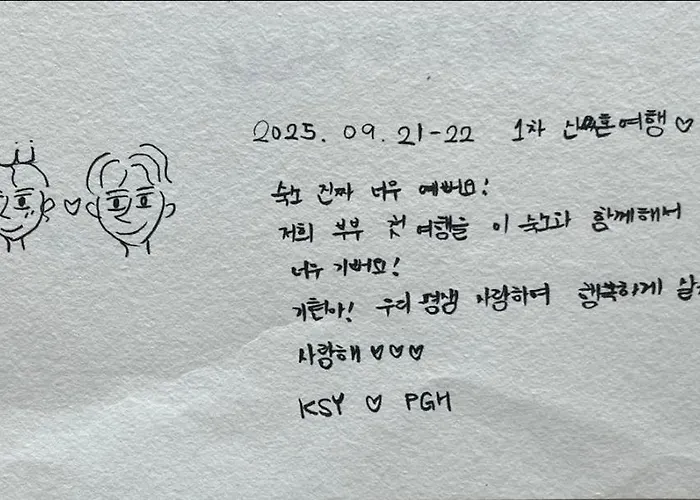 2025. 09. 21-22 1차 신혼여행 ♡
숙소 진짜 너무 예뻐요!
저희 부부 첫 여행을 이 숙소와 함께해서
너무 기뻐요!
기현아! 우리 평생 사랑하며 행복하게
사랑해 ♡♡♡
KSY ♡ PGH